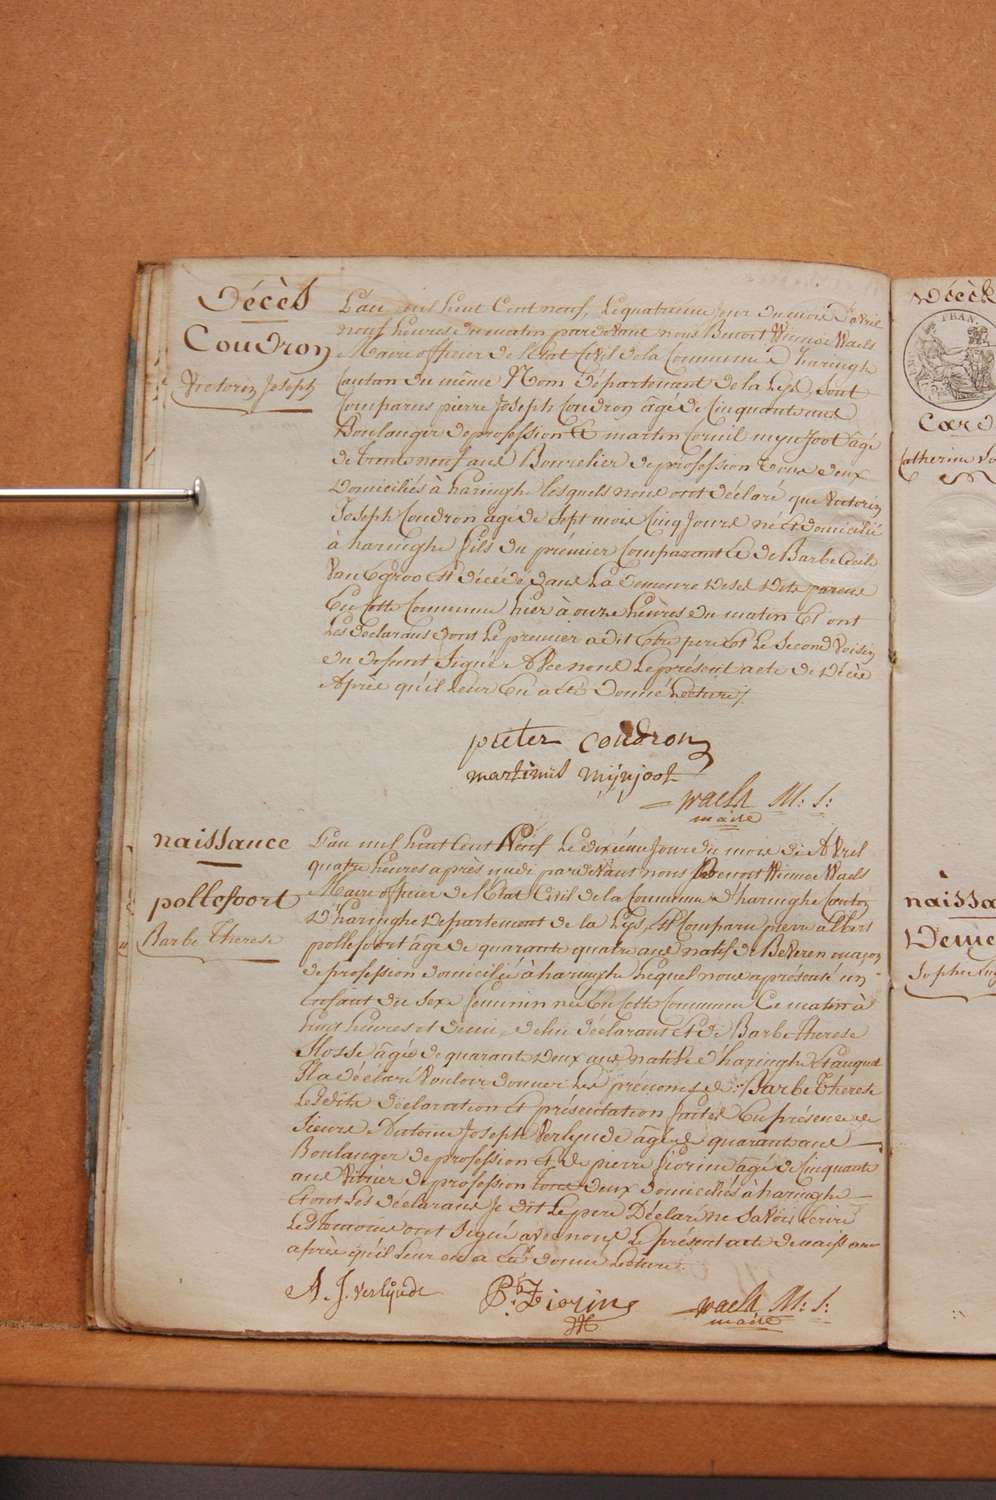 Décès
Coudron
Victorin Joseph
L'an mil huit Cent neuf, Le quatrieme Jour du mois D'avril
neuf heures du matin pardevant nous Benoit Winnoc Waels
Maire officier de l'Etat Civil de la Commune D'haringhe
Canton du même Nom Département de la Lys, sont
Comparus pierre Joseph Coudron âgé de Cinquante ans
Boulanger de profession Et martin Cornil mynjoot âgé
de trente neuf ans Bourelier de profession Tous deux
Domiciliés à haringhe lesquels nous ont déclaré que Victorin
Joseph Coudron agé de Sept mois Cinq Jours né Et domicilié
à haringhe fils du prémier Comparant Et de Barbe Cecile
Van Egroo Est décédé dans La Demeure Desd. Dits parens
En Cette Commune hier à onze heures du matin Et ont
Les déclarans dont Le premier a dit Etre pere Et Le Second Voisin
du défunt Signé Avec nous Le présent acte de Décès
Après qu'il Leur En a Eté Donné Lecture /.
pieter coudron
martinus mÿnjoot
waels M: J:
maire
naissance
pollefoort
Barbe Therese
L'an mil huit Cent Neuf Le dixiéme Jour du mois de Avril
quatre heures après midi pardevant nous Benoit Winnoc Waels
Maire officier de l'Etat Civil de la Commune d'haringhe Canton
D'haringhe Departement de la Lys, Est Comparu pierre albert
pollefoort âgé de quarante quatre ans natif de Beveren maçon
de profession domicilié à haringhe Lequel nous a présenté un
Enfant du Sexe feminin née En Cette Commune Ce matin à
huit heures et demie, de lui déclarant Et de Barbe Therese
âgée de quarante deux ans native d'haringhe Et auquel
Il a déclaré Vouloir donner Les prénoms de: Barbe Therese
Lesdits déclaration Et présentation faites En présence de
Sieurs Antoine Joseph Verlynde âgé de quarante ans
Boulanger de profession Et de pierre fiorin âgé de Cinquante
ans Vitrier de profession tous deux domiciliés à haringhe
Et ont Les déclarans Je dit Le pere Déclaré ne Savoir écrire
Les temoins ont Signé avec nous Le présent acte de naissance
après qu'il Leur en a Eté donné Lecture /.
A. J. verlÿnde
waels M: J:
maire
Décès
FRAN
Catherine
naissa
Sophie